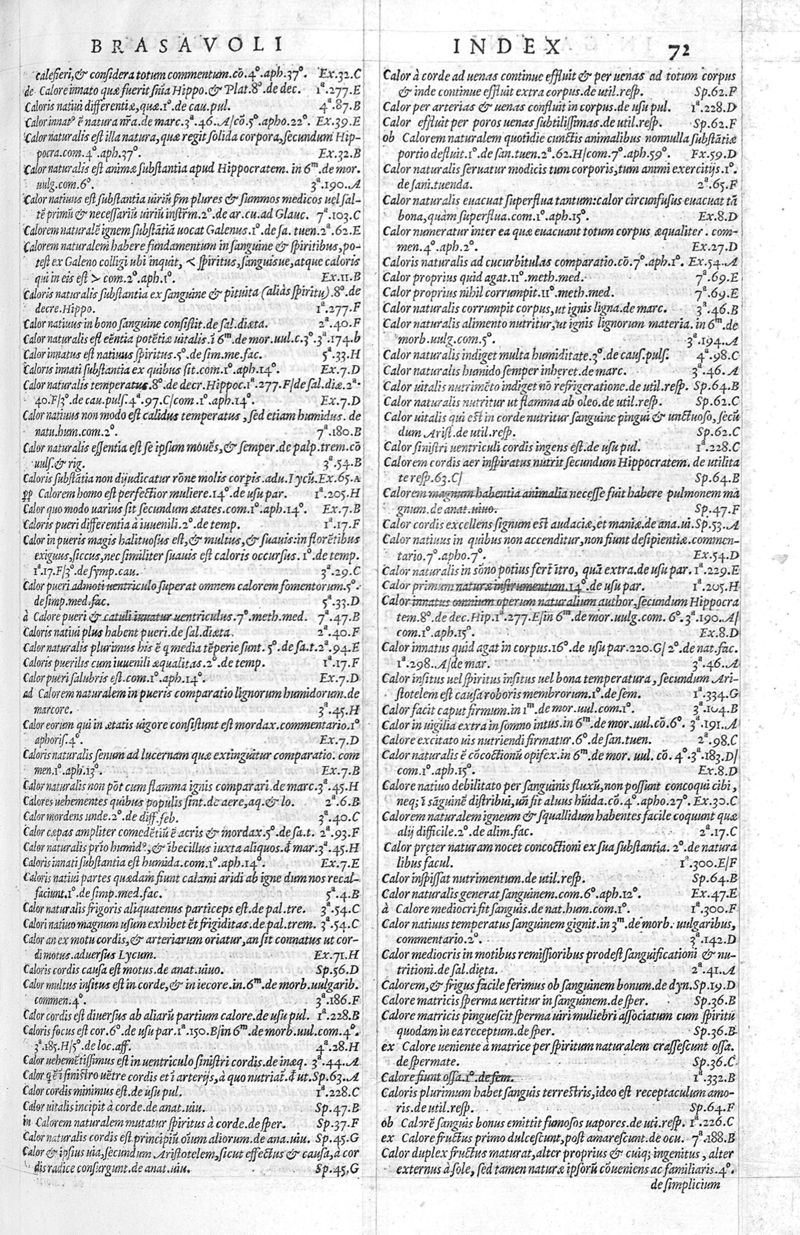 BRASAVOLI
calefieri,& considera totum commentum.cō.4°.aph.37°. Ex.32.C
de Calore innato quæ fuerit suia Hippo.& Plat.8°.de dec. 1ª.277.E
Caloris natiui differentiæ,quæ.1°.de cau.pul. 4ª.87.B
Calor innatᵒ è natura nr̄a.de marc.3ª.46.A/cō.5°.apho.22°. Ex.39.E
Calor naturalis est illa natura,quæ regit solida corpora,secundum Hip-
pocra.com.4°.aph.37°. Ex.32.B
Calor naturalis est animæ substantia apud Hippocratem. in 6ᵐ.de mor.
uulg.com.6°. 3ª.190.A
Calor natiuus est substantia uiriū ꝑm plures & summos medicos uel sal-
tē primū & necessariū uiriū instr̄m.2°.de ar.cu.ad Glauc. 7ª.103.C
Calorem naturalē ignem substātiā uocat Galenus.1°.de sa. tuen.2ª.62.E
Calorem naturalem habere fundamentum in sanguine & spiritibus,po-
test ex Galeno colligi ubi inquit, < spiritus, sanguisue, atque caloris
qui in eis est > com.2°.aph.1°. Ex.11.B
Caloris naturalis substantia ex sanguine & pituita (aliàs spiritu).8°.de
decre.Hippo. 1ª.277.F
Calor natiuus in bono sanguine consistit.de sal.diæta. 2ª.40.F
Calor naturalis est eēntia potētiæ uitalis.ī 6ᵐ.de mor.uul.c.3°.3ª.174.b
Calor innatus est natiuus spiritus.5°.de sim.me.fac. 5ª.33.H
Caloris innati substantia ex quibus sit.com.1°.aph.14°. Ex.7.D
Calor naturalis temperatus.8°.de decr.Hippoc.1ª.277.F/de sal.diæ.2ª-
40.F/3°.de cau.puls.4ª.97.C/com.1°.aph.14°. Ex.7.D
Calor natiuus non modo est calidus temperatus, sed etiam humidus. de
natu.hum.com.2°. 7ª.180.B
Calor naturalis essentia est se ipsum mouēs,& semper.de palp.trem.cō
uuls.& rig. 3ª.54.B
Caloris substātia non dijudicatur rōne molis corpis.adu.Lycū.Ex.65.A
ꝓp Calorem homo est perfectior muliere.14°.de usu par. 1ª.205.H
Calor quo modo uarius sit secundum ætates.com.1°.aph.14°. Ex.7.B
Caloris pueri differentia à iuuenili.2°.de temp. 1ª.17.F
Calor in pueris magis halituosus est,& multus,& suauis:in florētibus
exiguus,siccus,nec similiter suauis est caloris occursus. 1°.de temp.
1ª.17.F/3°.de symp.cau. 3ª.29.C
Calor pueri admoti uentriculo superat omnem calorem fomentorum.5°.
de simp.med.fac. 5ª.33.D
à Calore pueri & catuli iuuatur uentriculus.7°.meth.med. 7ª.47.B
Caloris natiui plus habent pueri.de sal.diæta. 2ª.40.F
Calor naturalis plurimus his è q media tēperie sunt. 5°.de sa.t.2ª.94.E
Caloris puerilis cum iuuenili æqualitas.2°.de temp. 1ª.17.F
Calor pueri salubris est.com.1°.aph.14°. Ex.7.D
ad Calorem naturalem in pueris comparatio lignorum humidorum.de
marcore. 3ª.45.H
Calor eorum qui in ætatis uigore consistunt est mordax.commentario.1°
aphoris.4°. Ex.7.D
Caloris naturalis senum ad lucernam quæ extinguitur comparatio. com
men.1°.aph.13°. Ex.7.B
Calor naturalis non pōt cum flamma ignis comparari.de marc.3ª.45.H
Calores uehementes quibus populis sint.de aere,aq.& lo. 2ª.6.B
Calor mordens unde.2°.de diff.feb. 3ª.40.C
Calor cæpas ampliter comedētiū è acris & mordax.5°.de sa.t. 2ª.93.F
Calor naturalis prīo humidᵒ,& ībecillus iuxta aliquos.đ mar.3ª.45.H
Caloris innati substantia est humida.com.1°.aph.14°. Ex.7.E
Caloris natiui partes quædam fiunt calami aridi ab igne dum nos recal-
faciunt.1°.de simp.med.fac. 5ª.4.B
Calor naturalis frigoris aliquatenus particeps est.de pal.tre. 3ª.54.C
Calori natiuo magnum usum exhibet ēt frigiditas.de pal.trem. 3ª.54.C
Calor an ex motu cordis,& arteriarum oriatur,an sit connatus ut cor-
di motus.aduersus Lycum. Ex.71.H
Caloris cordis causa est motus.de anat.uiuo. Sp.56.D
Calor multus insitus est in corde,& in iecore.in 6ᵐ.de morb.uulgarib.
commen.4°. 3ª.186.F
Calor cordis est diuersus ab aliarū partium calore.de usu pul. 1ª.228.B
Caloris focus est cor.6°.de usu par.1ª.150.E/in 6ᵐ.de morb.uul.com.4°.
3ª.185.H/5°.de loc.aff. 4ª.28.H
Calor uehemētissimus est in uentriculo sinistri cordis.de inæq. 3ª.44.A
Calor q̄ è ī sinistro uētre cordis et ī arterijs,à quo nutriat̄.đ ut.Sp.63.A
Calor cordis minimus est.de usu pul. 1ª.228.C
Calor uitalis incipit à corde.de anat.uiu. Sp.47.B
in Calorem naturalem mutatur spiritus à corde.de sper. Sp.37.F
Calor naturalis cordis est principiū oīum aliorum.de ana.uiu. Sp.45.G
Calor & ipsius uia,secundum Aristotelem,sicut effectus & causa,à cor
dis radice consurgunt.de anat.uiu. Sp.45.G
INDEX 72
Calor à corde ad uenas continue effluit & per uenas ad totum corpus
& inde continue effluit extra corpus.de util.resp. Sp.62.F
Calor per arterias & uenas confluit in corpus.de usu pul. 1ª.228.D
Calor effluit per poros uenas subtilissimas.de util.resp. Sp.62.F
ob Calorem naturalem quotidie cunctis animalibus nonnulla substātiæ
portio defluit.1°.de san.tuen.2ª.62.H/com.7°.aph.59°. Ex.59.D
Calor naturalis seruatur modicis tum corporis,tum animi exercitijs.1°.
de sani.tuenda. 2ª.65.F
Calor naturalis euacuat superflua tantum:calor circunfusus euacuat tā
bona,quàm superflua.com.1°.aph.15°. Ex.8.D
Calor numeratur inter ea quæ euacuant totum corpus æqualiter. com-
men.4°.aph.2°. Ex.27.D
Caloris naturalis ad cucurbitulas comparatio.cō.7°.aph.1°. Ex.54.A
Calor proprius quid agat.11°.meth.med. 7ª.69.E
Calor proprius nihil corrumpit.11°.meth.med. 7ª.69.E
Calor naturalis corrumpit corpus,ut ignis ligna.de marc. 3ª.46.B
Calor naturalis alimento nutritur,ut ignis lignorum materia. in 6ᵐ.de
morb.uulg.com.5°. 3ª.194.A
Calor naturalis indiget multa humiditate.3°.de caus.puls. 4ª.98.C
Calor naturalis humido semper inheret.de marc. 3ª.46.A
Calor uitalis nutrimēto indiget nō refrigeratione.de util.resp. Sp.64.B
Calor naturalis nutritur ut flamma ab oleo.de util.resp. Sp.62.C
Calor uitalis qui est in corde nutritur sanguine pingui & unctuoso,secū
dum Arist.de util.resp. Sp.62.C
Calor sinistri uentriculi cordis ingens est.de usu pul. 1ª.228.C
Calorem cordis aer inspiratus nutrit secundum Hippocratem. de utilita
te resp.63.C/ Sp.64.B
Calorem magnum habentia animalia necesse fuit habere pulmonem ma
gnum.de anat.uiuo. Sp.47.F
Calor cordis excellens signum est audaciæ,et maniæ.de ana.ui.Sp.53.A
Calor natiuus in quibus non accenditur,non fiunt desipientiæ.commen-
tario.7°.apho.7°. Ex.54.D
Calor naturalis in sōno potius fert̄ ītro, quā extra.de usu par. 1ª.229.E
Calor primum naturæ instrumentum.14°.de usu par. 1ª.205.H
Calor innatus omnium operum naturalium author,secundum Hippocra
tem.8°.de dec.Hip.1ª.277.E/in 6ᵐ.de mor.uulg.com.6°. 3ª.190.A/
com.1°.aph.15°. Ex.8.D
Calor innatus quid agat in corpus.16°.de usu par.220.G/ 2°.de nat.fac.
1ª.298.A/de mar. 3ª.46.A
Calor insitus uel spiritus insitus uel bona temperatura, secundum Ari-
stotelem est causa roboris membrorum.1°.de sem. 1ª.334.G
Calor facit caput firmum.in 1ᵐ.de mor.uul.com.1°. 3ª.104.B
Calor in uigilia extra in somno intus.in 6ᵐ.de mor.uul.cō.6°. 3ª.191.A
Calore excitato uis nutriendi firmatur.6°.de san.tuen. 2ª.98.C
Calor naturalis è cōcoctionū opifex.in 6ᵐ.de mor. uul. cō. 4°.3ª.183.D/
com.1°.aph.15°. Ex.8.D
Calore natiuo debilitato per sanguinis fluxū,non possunt concoqui cibi,
neq; ī sāguinē distribui,uñ fit aluus hūida.cō.4°.apho.27°. Ex.30.C
Calorem naturalem igneum & squallidum habentes facile coquunt quæ
alij difficile.2°.de alim.fac. 2ª.17.C
Calor præter naturam nocet concoctioni ex sua substantia. 2°.de natura
libus facul. 1ª.300.E/F
Calor inspissat nutrimentum.de util.resp. Sp.64.B
Calor naturalis generat sanguinem.com.6°.aph.12°. Ex.47.E
à Calore mediocri fit sanguis.de nat.hum.com.1°. 1ª.300.F
Calor natiuus temperatus sanguinem gignit.in 3ᵐ.de morb. uulgaribus,
commentario.2°. 3ª.142.D
Calor mediocris in motibus remissioribus prodest sanguificationi & nu-
tritioni.de sal.dięta. 2ª.41.A
Calorem,& frigus facile ferimus ob sanguinem bonum.de dyn.Sp.19.D
Calore matricis sperma uertitur in sanguinem.de sper. Sp.36.B
Calore matricis pinguescit sperma uiri muliebri associatum cum spiritu
quodam in ea receptum.de sper. Sp.36.B
ex Calore ueniente à matrice per spiritum naturalem crassescunt ossa.
de spermate. Sp.36.C
Calore fiunt ossa.1°.de sem. 1ª.332.B
Caloris plurimum habet sanguis terrestris,ideo est receptaculum amo-
ris.de util.resp. Sp.64.F
ob Calorē sanguis bonus emittit fumosos uapores.de uti.resp. 1ª.226.C
ex Calore fructus primo dulcescunt,post amarescunt.de ocu. 7ª.188.B
Calor duplex fructus maturat,alter proprius & cuiq; ingenitus, alter
externus à sole, sed tamen naturæ ipsorū cōueniens ac familiaris.4°.
de simplicium